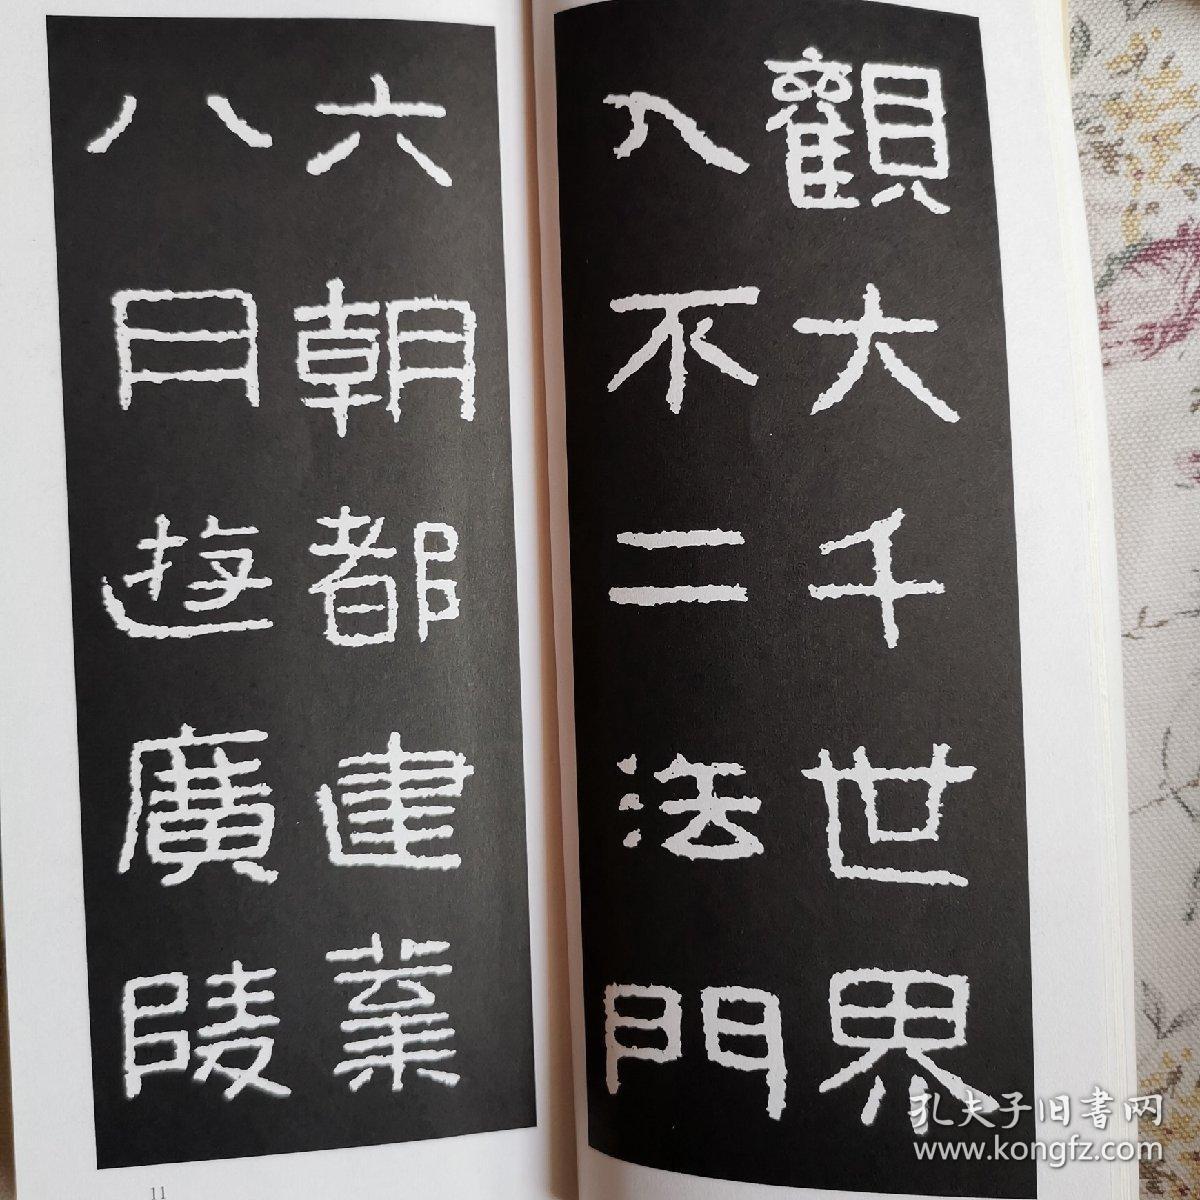 觀大千世界
入不二法門
六朝都建業
八日遊廣陵
11
孔夫子旧书网
www.kongfz.com